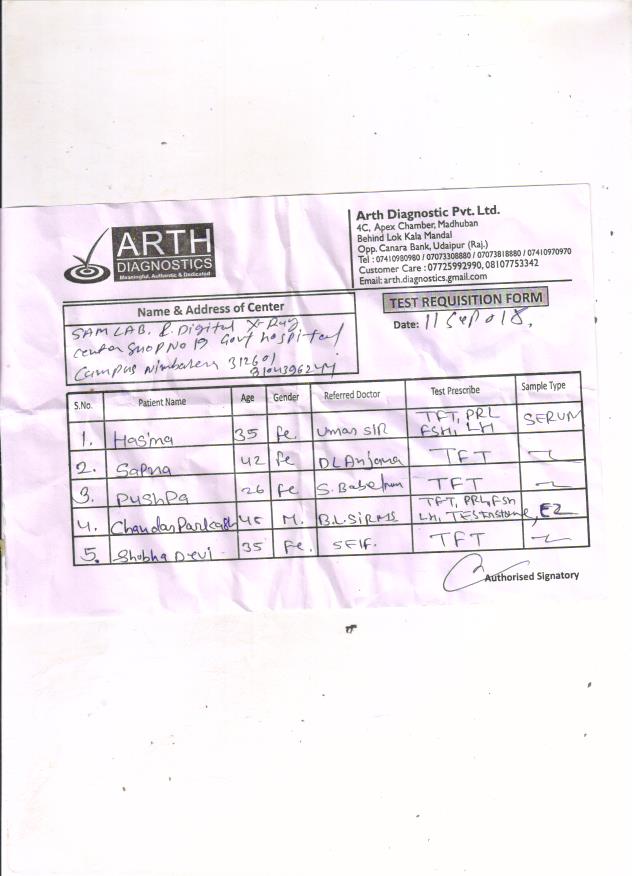 ARTH
DIAGNOSTICS
Meaningful, Authentic & Dedicated
Arth Diagnostic Pvt. Ltd.
4C, Apex Chamber, Madhuban
Behind Lok Kala Mandal
Opp. Canara Bank, Udaipur (Raj.)
Tel : 07410980980 / 07073308880 / 07073818880 / 07410970970
Customer Care : 07725992990, 08107753342
Email: arth.diagnostics.gmail.com
TEST REQUISITION FORM
Date: 11 Sep 018,
Name & Address of Center
SAM LAB. & Digital X-Ray
center Shop No 19 Govt hospital
Campus Nimbahera 312601
S.No. Patient Name Age Gender Referred Doctor Test Prescribe Sample Type
1. Hasina 35 Fe. Uman SIR TFT, PRL FSH, LH SERUM
2. Sapna 42 Fe DL Anjana TFT
3. Pushpa 26 Fe S. TFT
4. Chandar Parkash 45 M. B.L. TFT, PRL, FSH LH, , E2
5. Shobha Devi 35 Fe. SELF. TFT
Authorised Signatory